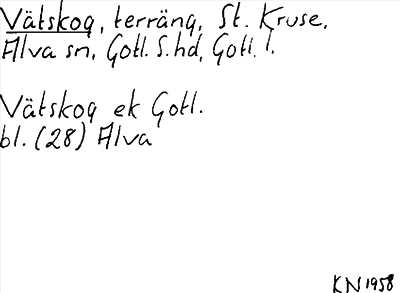 Vätskog, terräng, St. Kruse,
Alva sn, Gotl. S. hd, Gotl. l.
Vätskog ek Gotl.
bl. (28) Alva
KN 1958